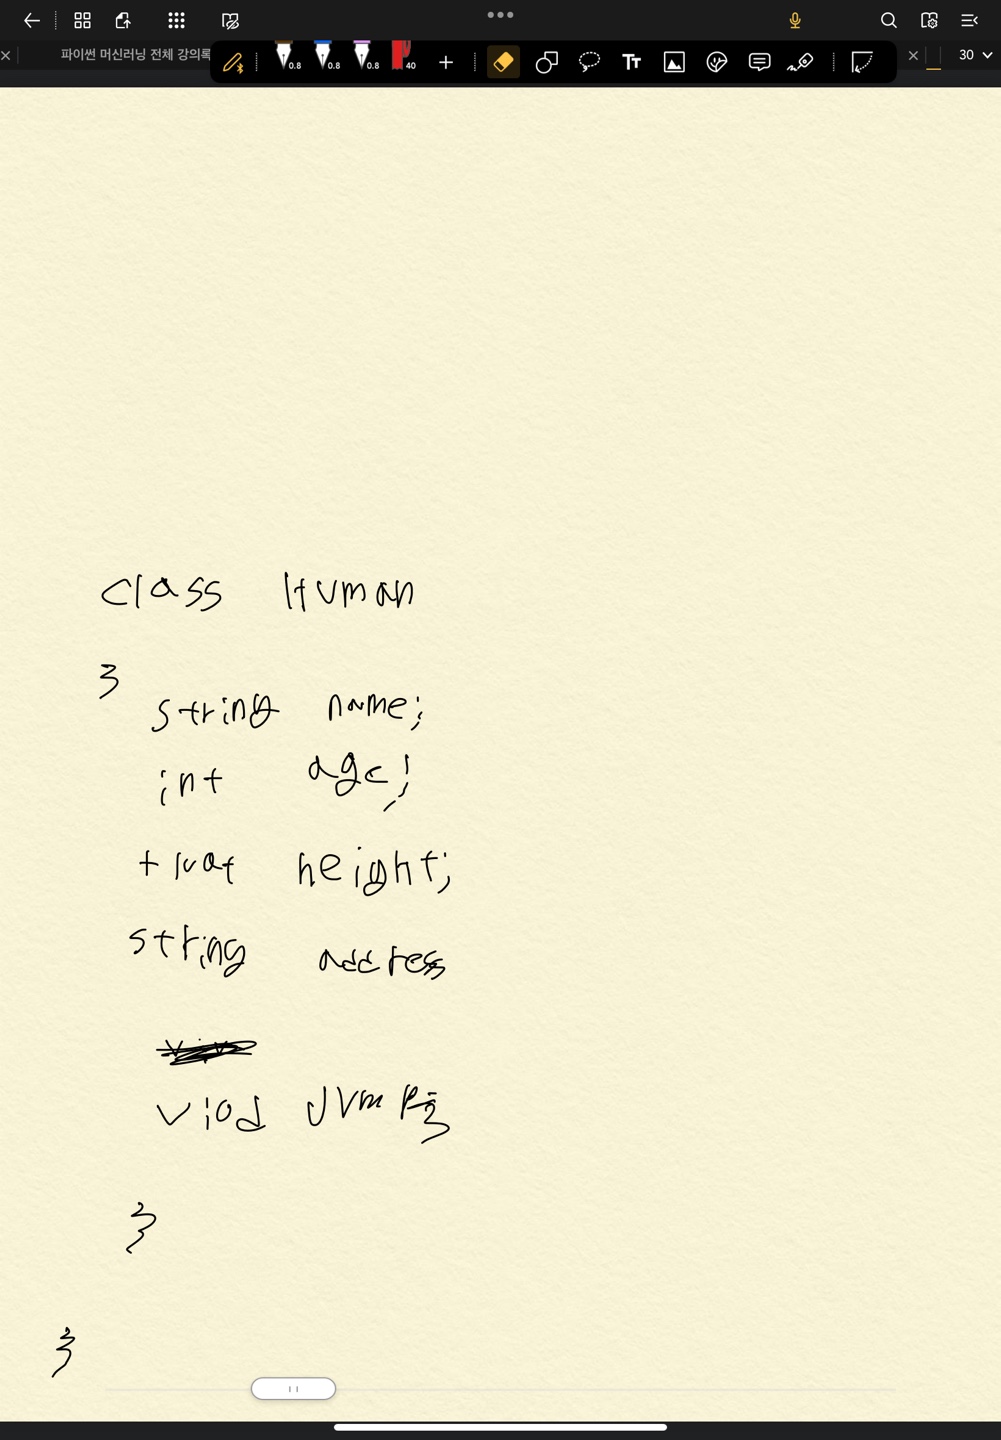 파이썬 머신러닝 전체 강의록
0.8 0.8 0.8 40 Tt 30
class Human
}
string name;
int age;
float height;
string address
viod Jump
}
}